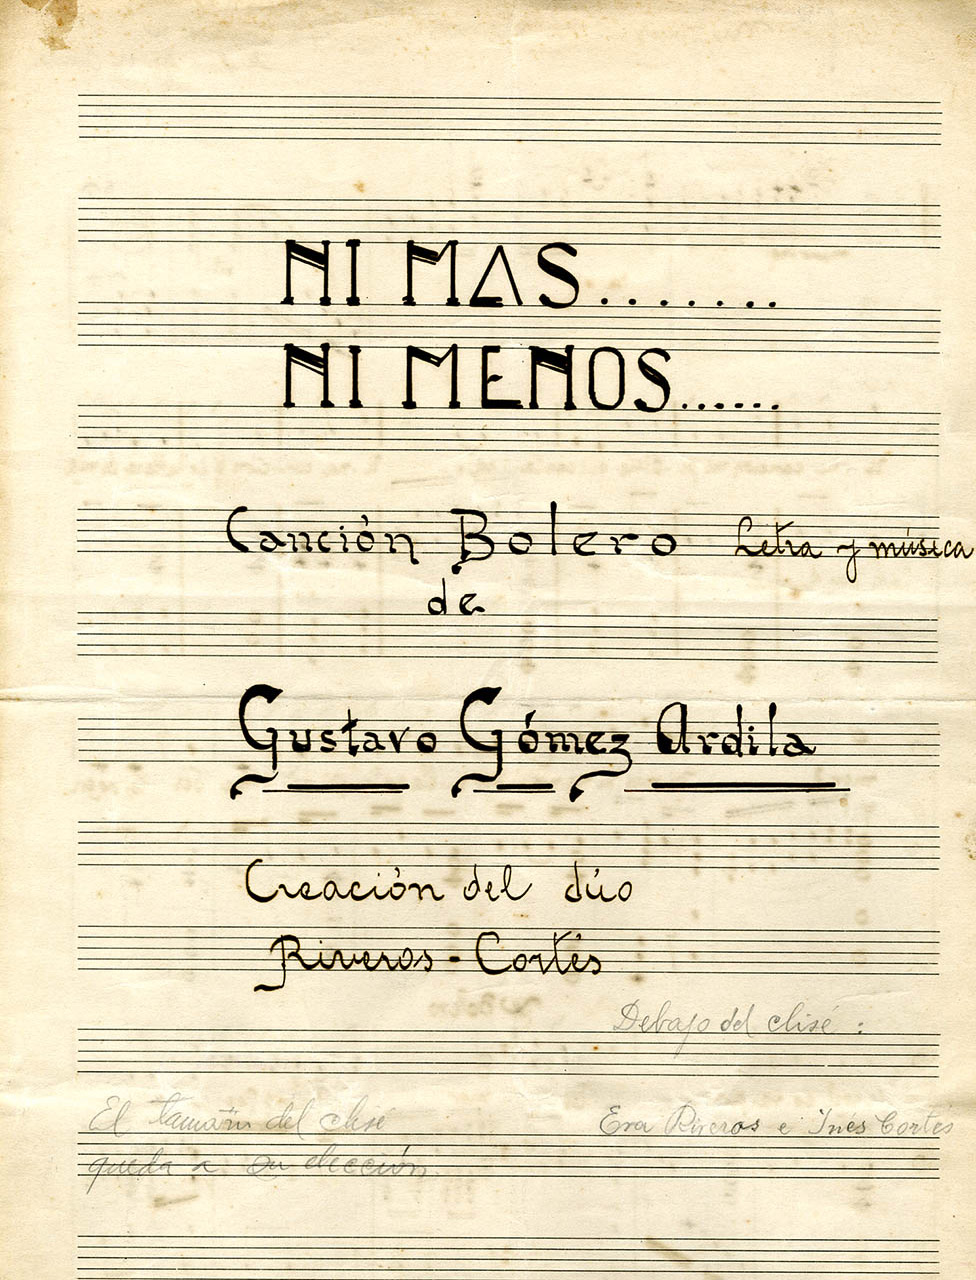 NI MAS........
NI MENOS......
Canción Bolero Letra y música
de
Gustavo Gómez Ardila
Creación del dúo
Riveros - Cortés
Debajo del clisé :
El tamaño del clisé
queda a su elección.
Eva Riveros e Inés Cortés